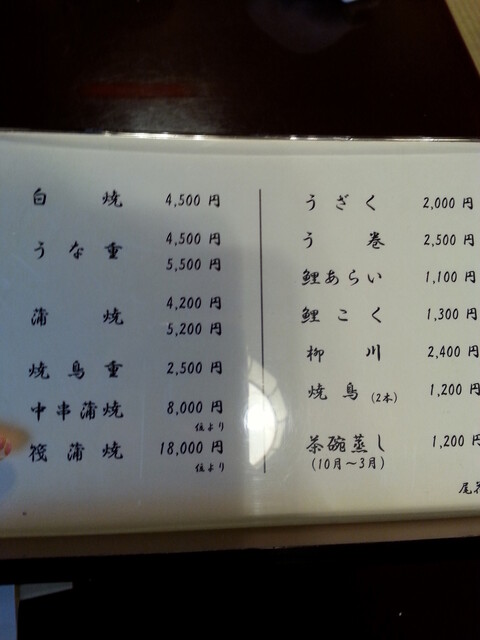 白焼 4,500 円
うな重 4,500 円
5,500 円
蒲焼 4,200 円
5,200 円
焼鳥重 2,500 円
中串蒲焼 8,000 円
位より
筏蒲焼 18,000 円
位より
うざく 2,000 円
う巻 2,500 円
鯉あらい 1,100 円
鯉こく 1,300 円
柳川 2,400 円
焼鳥(2本) 1,200 円
茶碗蒸し 1,200 円
(10月～3月)
尾